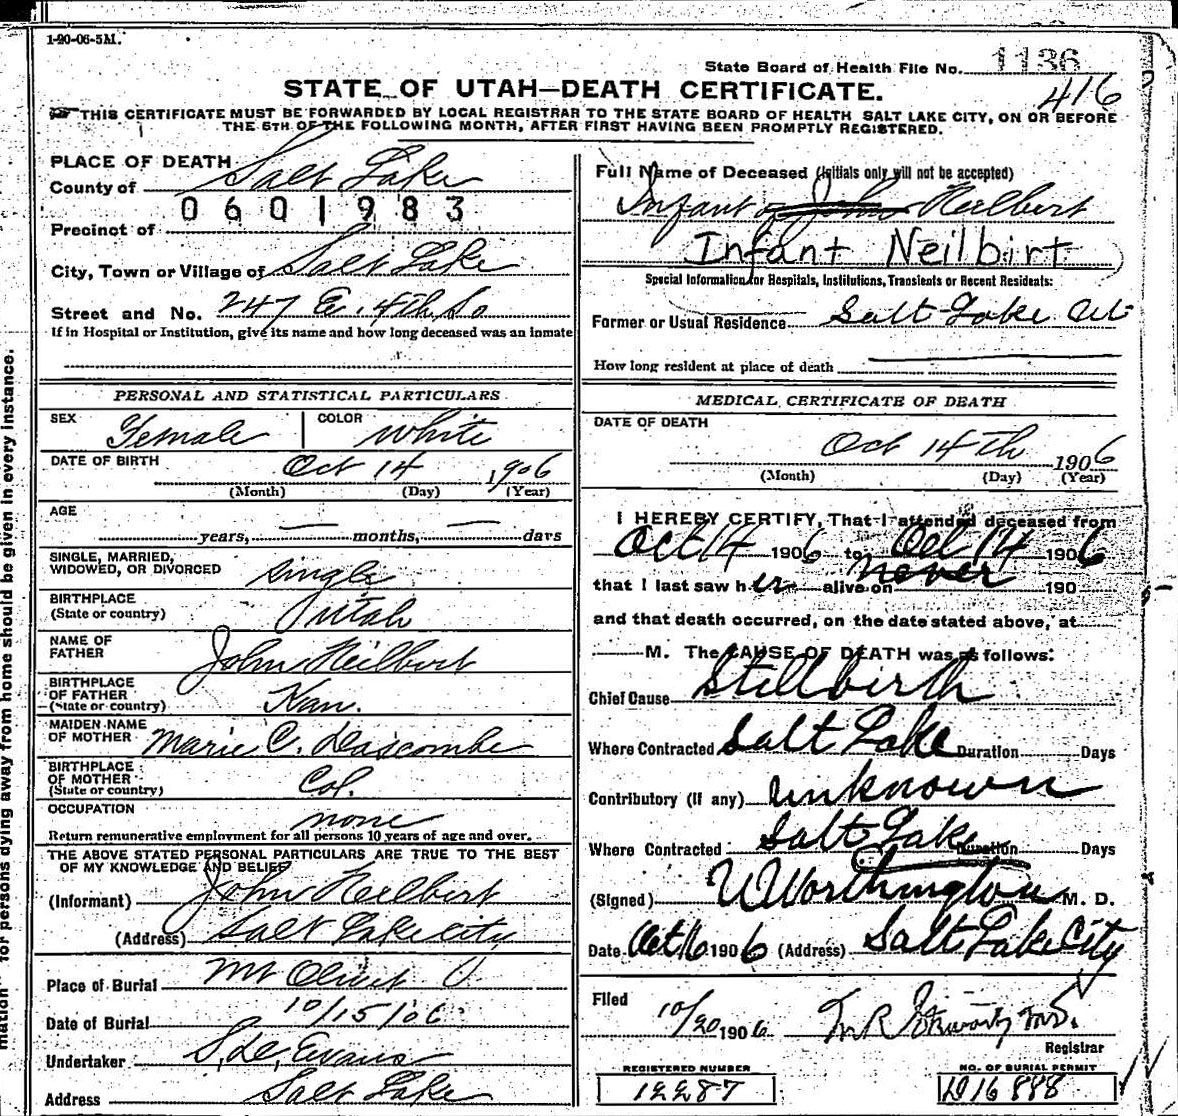 1-20-06-5M.
State Board of Health File No. 1136
416
STATE OF UTAH—DEATH CERTIFICATE.
THIS CERTIFICATE MUST BE FORWARDED BY LOCAL REGISTRAR TO THE STATE BOARD OF HEALTH SALT LAKE CITY, ON OR BEFORE
THE 5TH OF THE FOLLOWING MONTH, AFTER FIRST HAVING BEEN PROMPTLY REGISTERED.
PLACE OF DEATH
County of Salt Lake
0601983
Precinct of
City, Town or Village of Salt Lake
Street and No. 247 E. 4th So
If in Hospital or Institution, give its name and how long deceased was an inmate
PERSONAL AND STATISTICAL PARTICULARS
SEX Female COLOR White
DATE OF BIRTH Oct 14 1906
(Month) (Day) (Year)
AGE
years, — months, — days
SINGLE, MARRIED,
WIDOWED, OR DIVORCED Single
BIRTHPLACE
(State or country) Utah
NAME OF
FATHER John Neilbert
BIRTHPLACE
OF FATHER
(State or country) Kan.
MAIDEN NAME
OF MOTHER Marie C. Dascombe
BIRTHPLACE
OF MOTHER
(State or country) Col.
OCCUPATION none
Return remunerative employment for all persons 10 years of age and over.
THE ABOVE STATED PERSONAL PARTICULARS ARE TRUE TO THE BEST
OF MY KNOWLEDGE AND BELIEF
(Informant) John Neilbert
(Address) Salt Lake City
Place of Burial Mt Olivet
Date of Burial 10/15/06
Undertaker Evans
Address Salt Lake
Full Name of Deceased (Initials only will not be accepted)
Infant of John Neilbert
Infant Neilbirt
Special Information for Hospitals, Institutions, Transients or Recent Residents:
Former or Usual Residence Salt Lake
How long resident at place of death
MEDICAL CERTIFICATE OF DEATH
DATE OF DEATH
Oct 14th 1906
(Month) (Day) (Year)
I HEREBY CERTIFY, That I attended deceased from
Oct 14 1906 to Oct 14 1906
that I last saw her alive on never 190
and that death occurred, on the date stated above, at
M. The CAUSE OF DEATH was as follows:
Chief Cause Stillbirth
Where Contracted Salt Lake Duration Days
Contributory (if any) unknown
Where Contracted Salt Lake Duration Days
(Signed) W Worthington M. D.
Date Oct 16 1906 (Address) Salt Lake City
Filed 10/20 1906
Registrar
REGISTERED NUMBER
12287
NO. OF BURIAL PERMIT
D16888
mation" for persons dying away from home should be given in every instance.